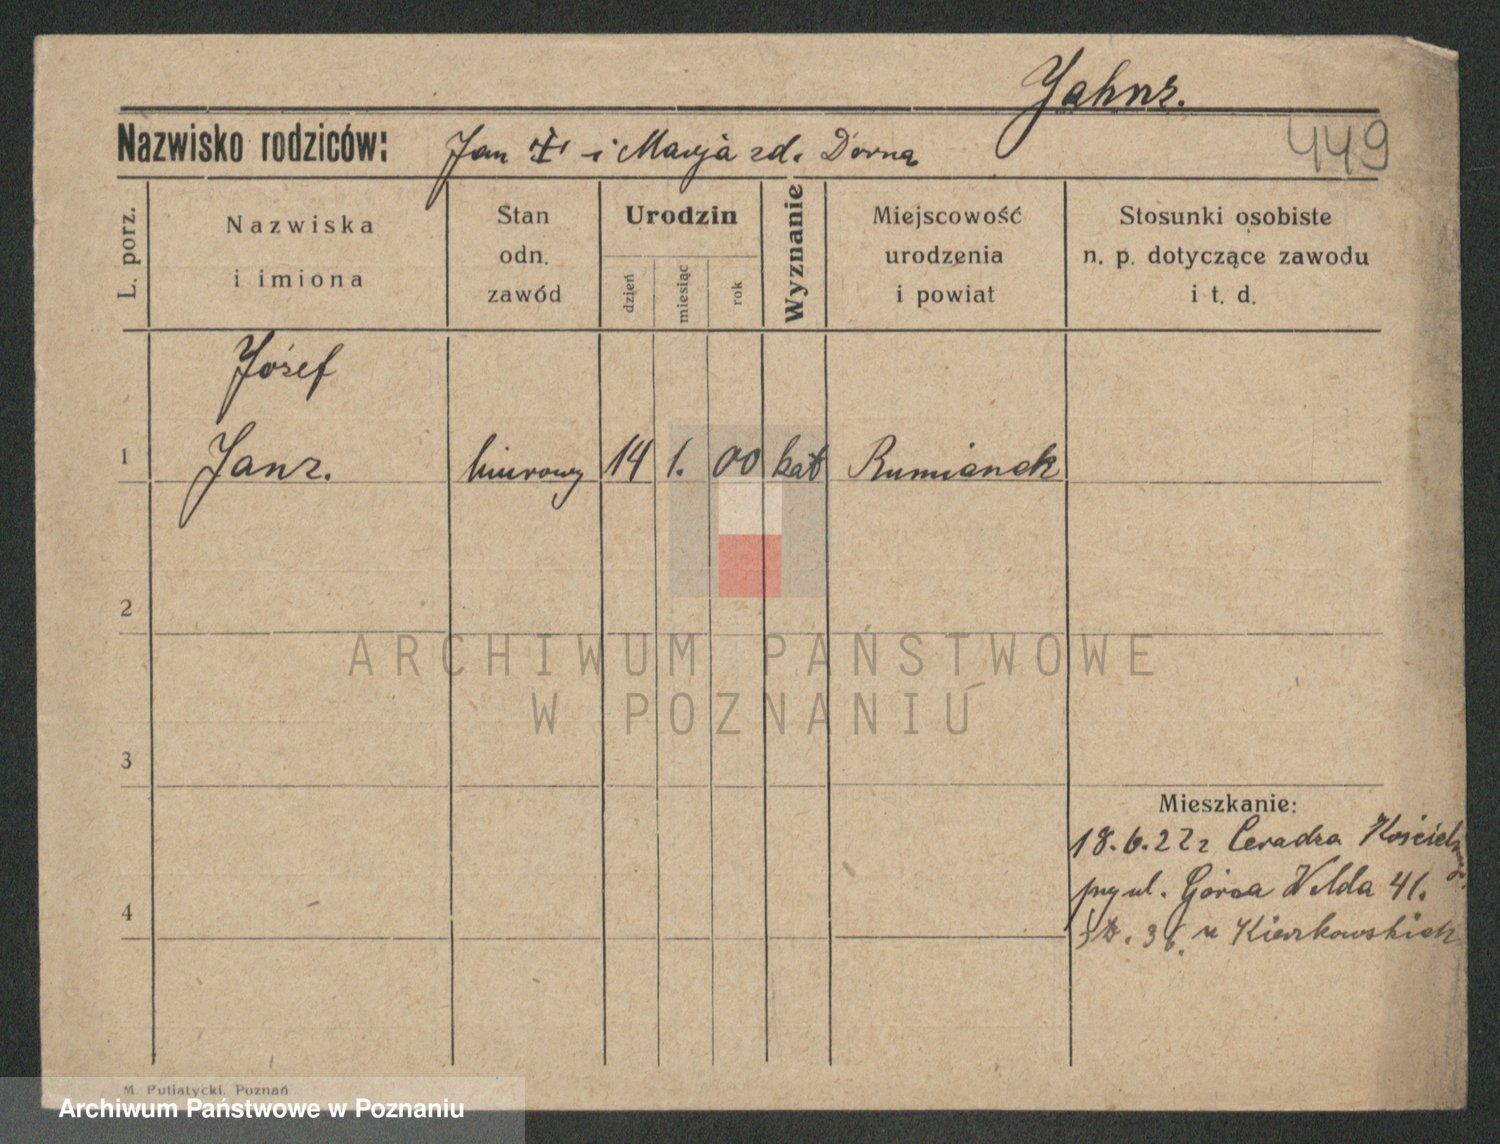 Jahnz.
449
Nazwisko rodziców: Jan i Marja zd. Dorna
L. porz.
Nazwiska
i imiona
Stan
odn.
zawód
Urodzin
dzień
miesiąc
rok
Wyznanie
Miejscowość
urodzenia
i powiat
Stosunki osobiste
n. p. dotyczące zawodu
i t. d.
Józef
1 Janz. biurowy 14 1. 00 kat Rumianek
2
3
4
Mieszkanie:
18.6.22 z Ceradza Kościeln.
przy ul. Górna Wilda 41.
36. u Kierzkowskich
M. Putiatycki, Poznań
ARCHIWUM PAŃSTWOWE
W POZNANIU
Archiwum Państwowe w Poznaniu